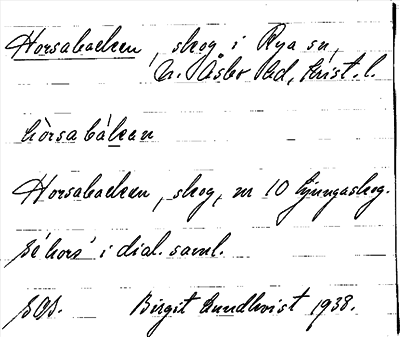 Horsabacken, skog i Rya sn,
N. Åsbo hd, Krist. l.
hòrsabákan
Horsabacken, skog, nr 10 Ljungaskog.
se 'hors' i dial. saml.
SOS. Birgit Lundkvist 1938.